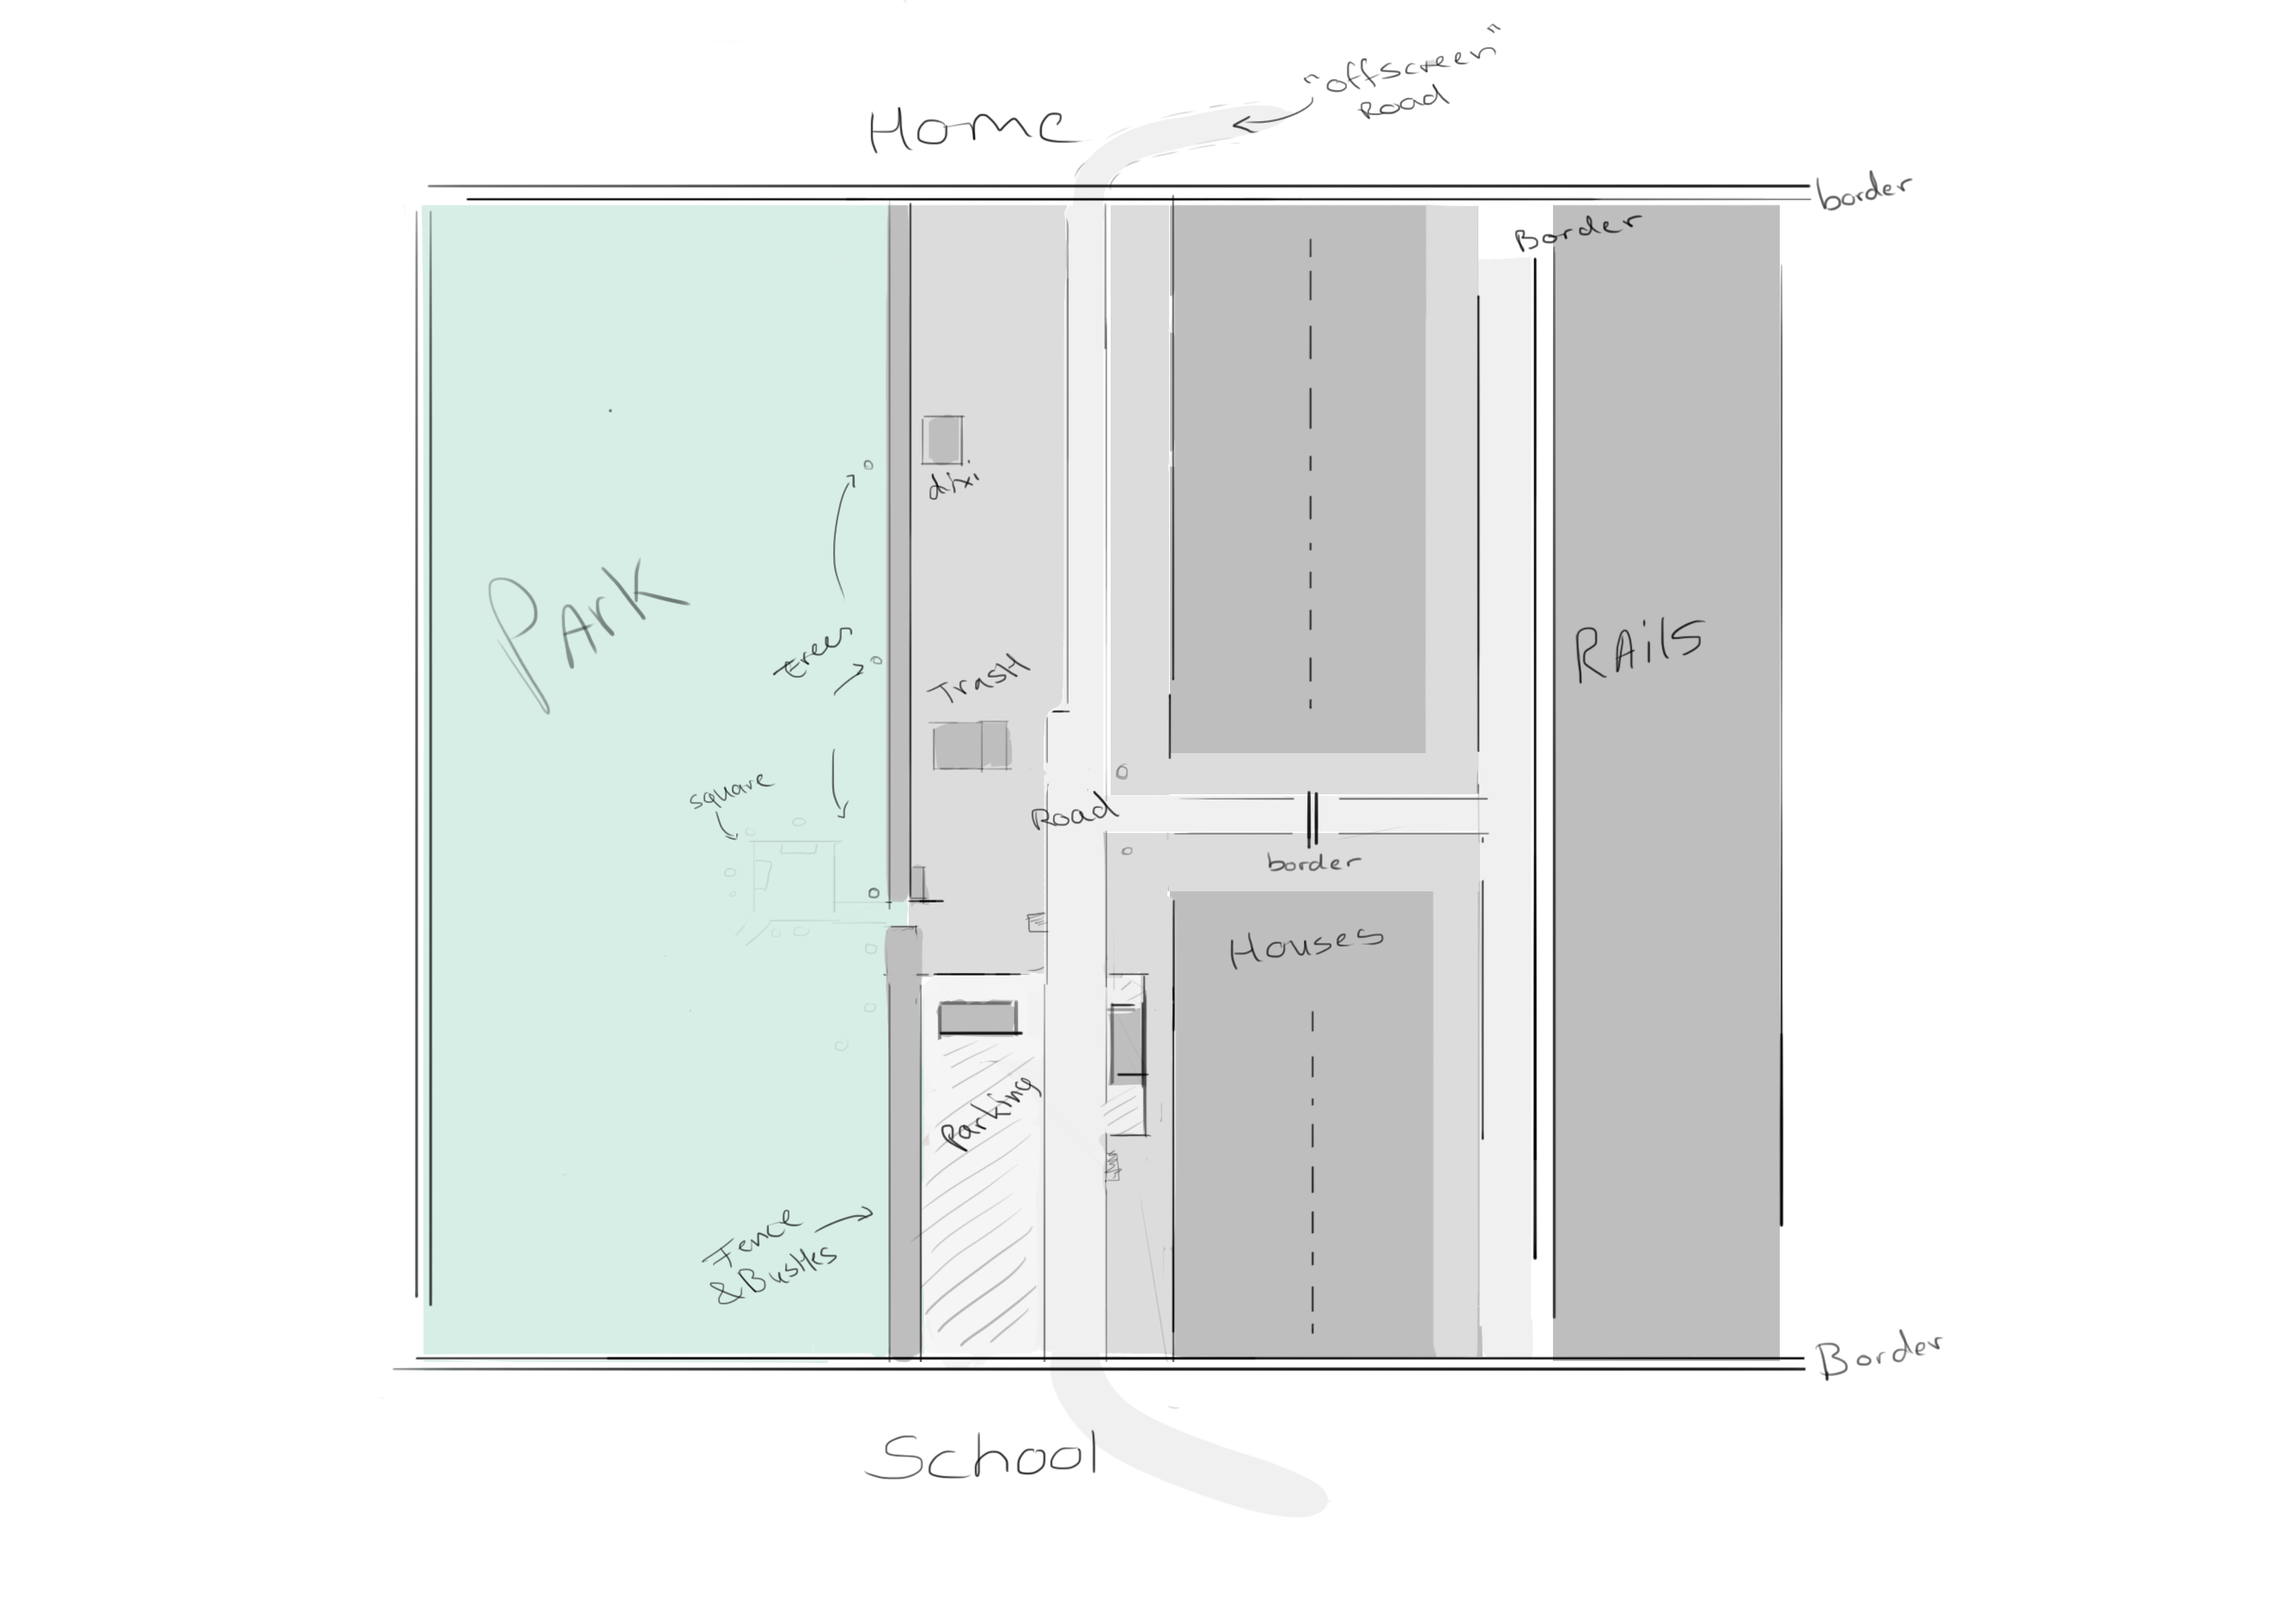 "offscreen"
Road
Home
border
Border
dixi
PArk
Trees
TrasH
RAils
square
Road
border
Houses
Parking
Fence
&BusHes
Border
School